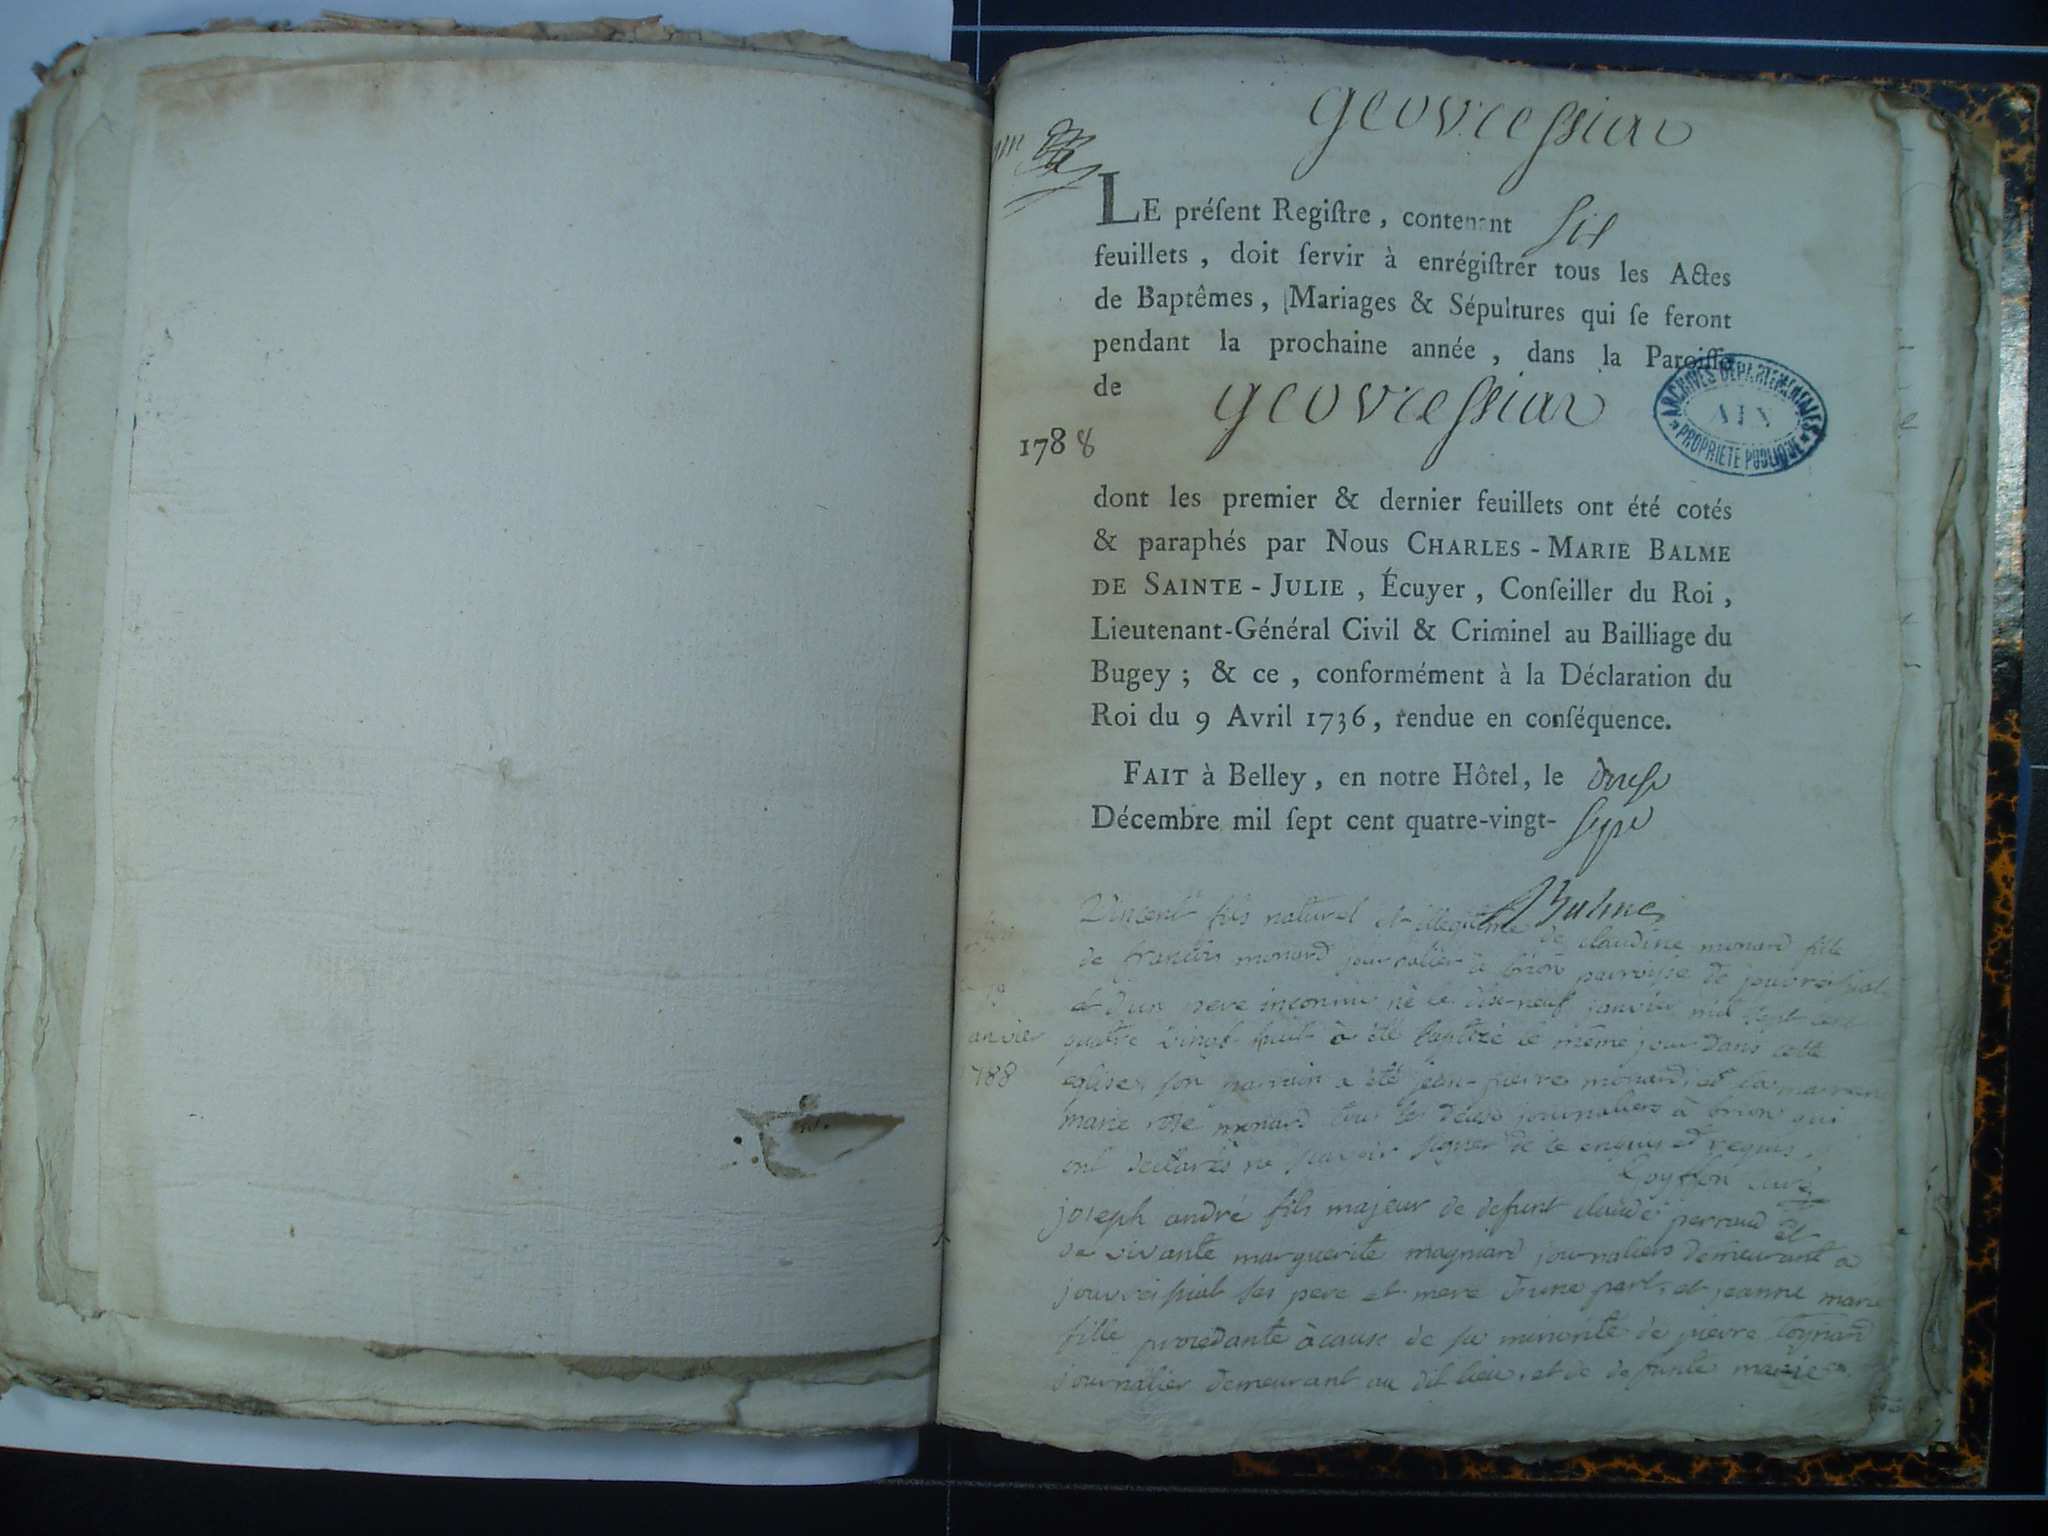 geovressiat
LE préſent Regiſtre, contenant six
feuillets, doit ſervir à enrégiſtrer tous les Actes
de Baptêmes, Mariages & Sépultures qui ſe feront
pendant la prochaine année, dans la Paroiſſe
de geovressiat
ARCHIVES DÉPARTEMENTALES
AIN
PROPRIÉTÉ PUBLIQUE
1788
dont les premier & dernier feuillets ont été cotés
& paraphés par Nous CHARLES-MARIE BALME
DE SAINTE-JULIE, Écuyer, Conſeiller du Roi,
Lieutenant-Général Civil & Criminel au Bailliage du
Bugey; & ce, conformément à la Déclaration du
Roi du 9 Avril 1736, rendue en conſéquence.
FAIT à Belley, en notre Hôtel, le douse
Décembre mil ſept cent quatre-vingt-sept
Balme
Vincent fils naturel et illegitime de claudine monard fille
de francois monard journallier à brion parroisse de jouvreissiat
et d'un pere inconnu né le dix-neuf janvier mil sept cent
quatre vingt huit à été baptizé le même jour dans cette
eglise, son parrain a été jean-pierre monard, et la marraine
marie monard tous les deux journaliers à brion qui
ont declarés ne scavoir signer de ce enquis et requis.
Coyffon curé
19
anvier
788
joseph andré fils majeur de defunt claude perraud et
de vivante marguerite magniard journaliers demeurant a
jouvreissiat ses pere et mere d'une part, et jeanne marie
fille procedante à cause de sa minorité de pierre
journalier demeurant au dit lieu, et de defunte marie